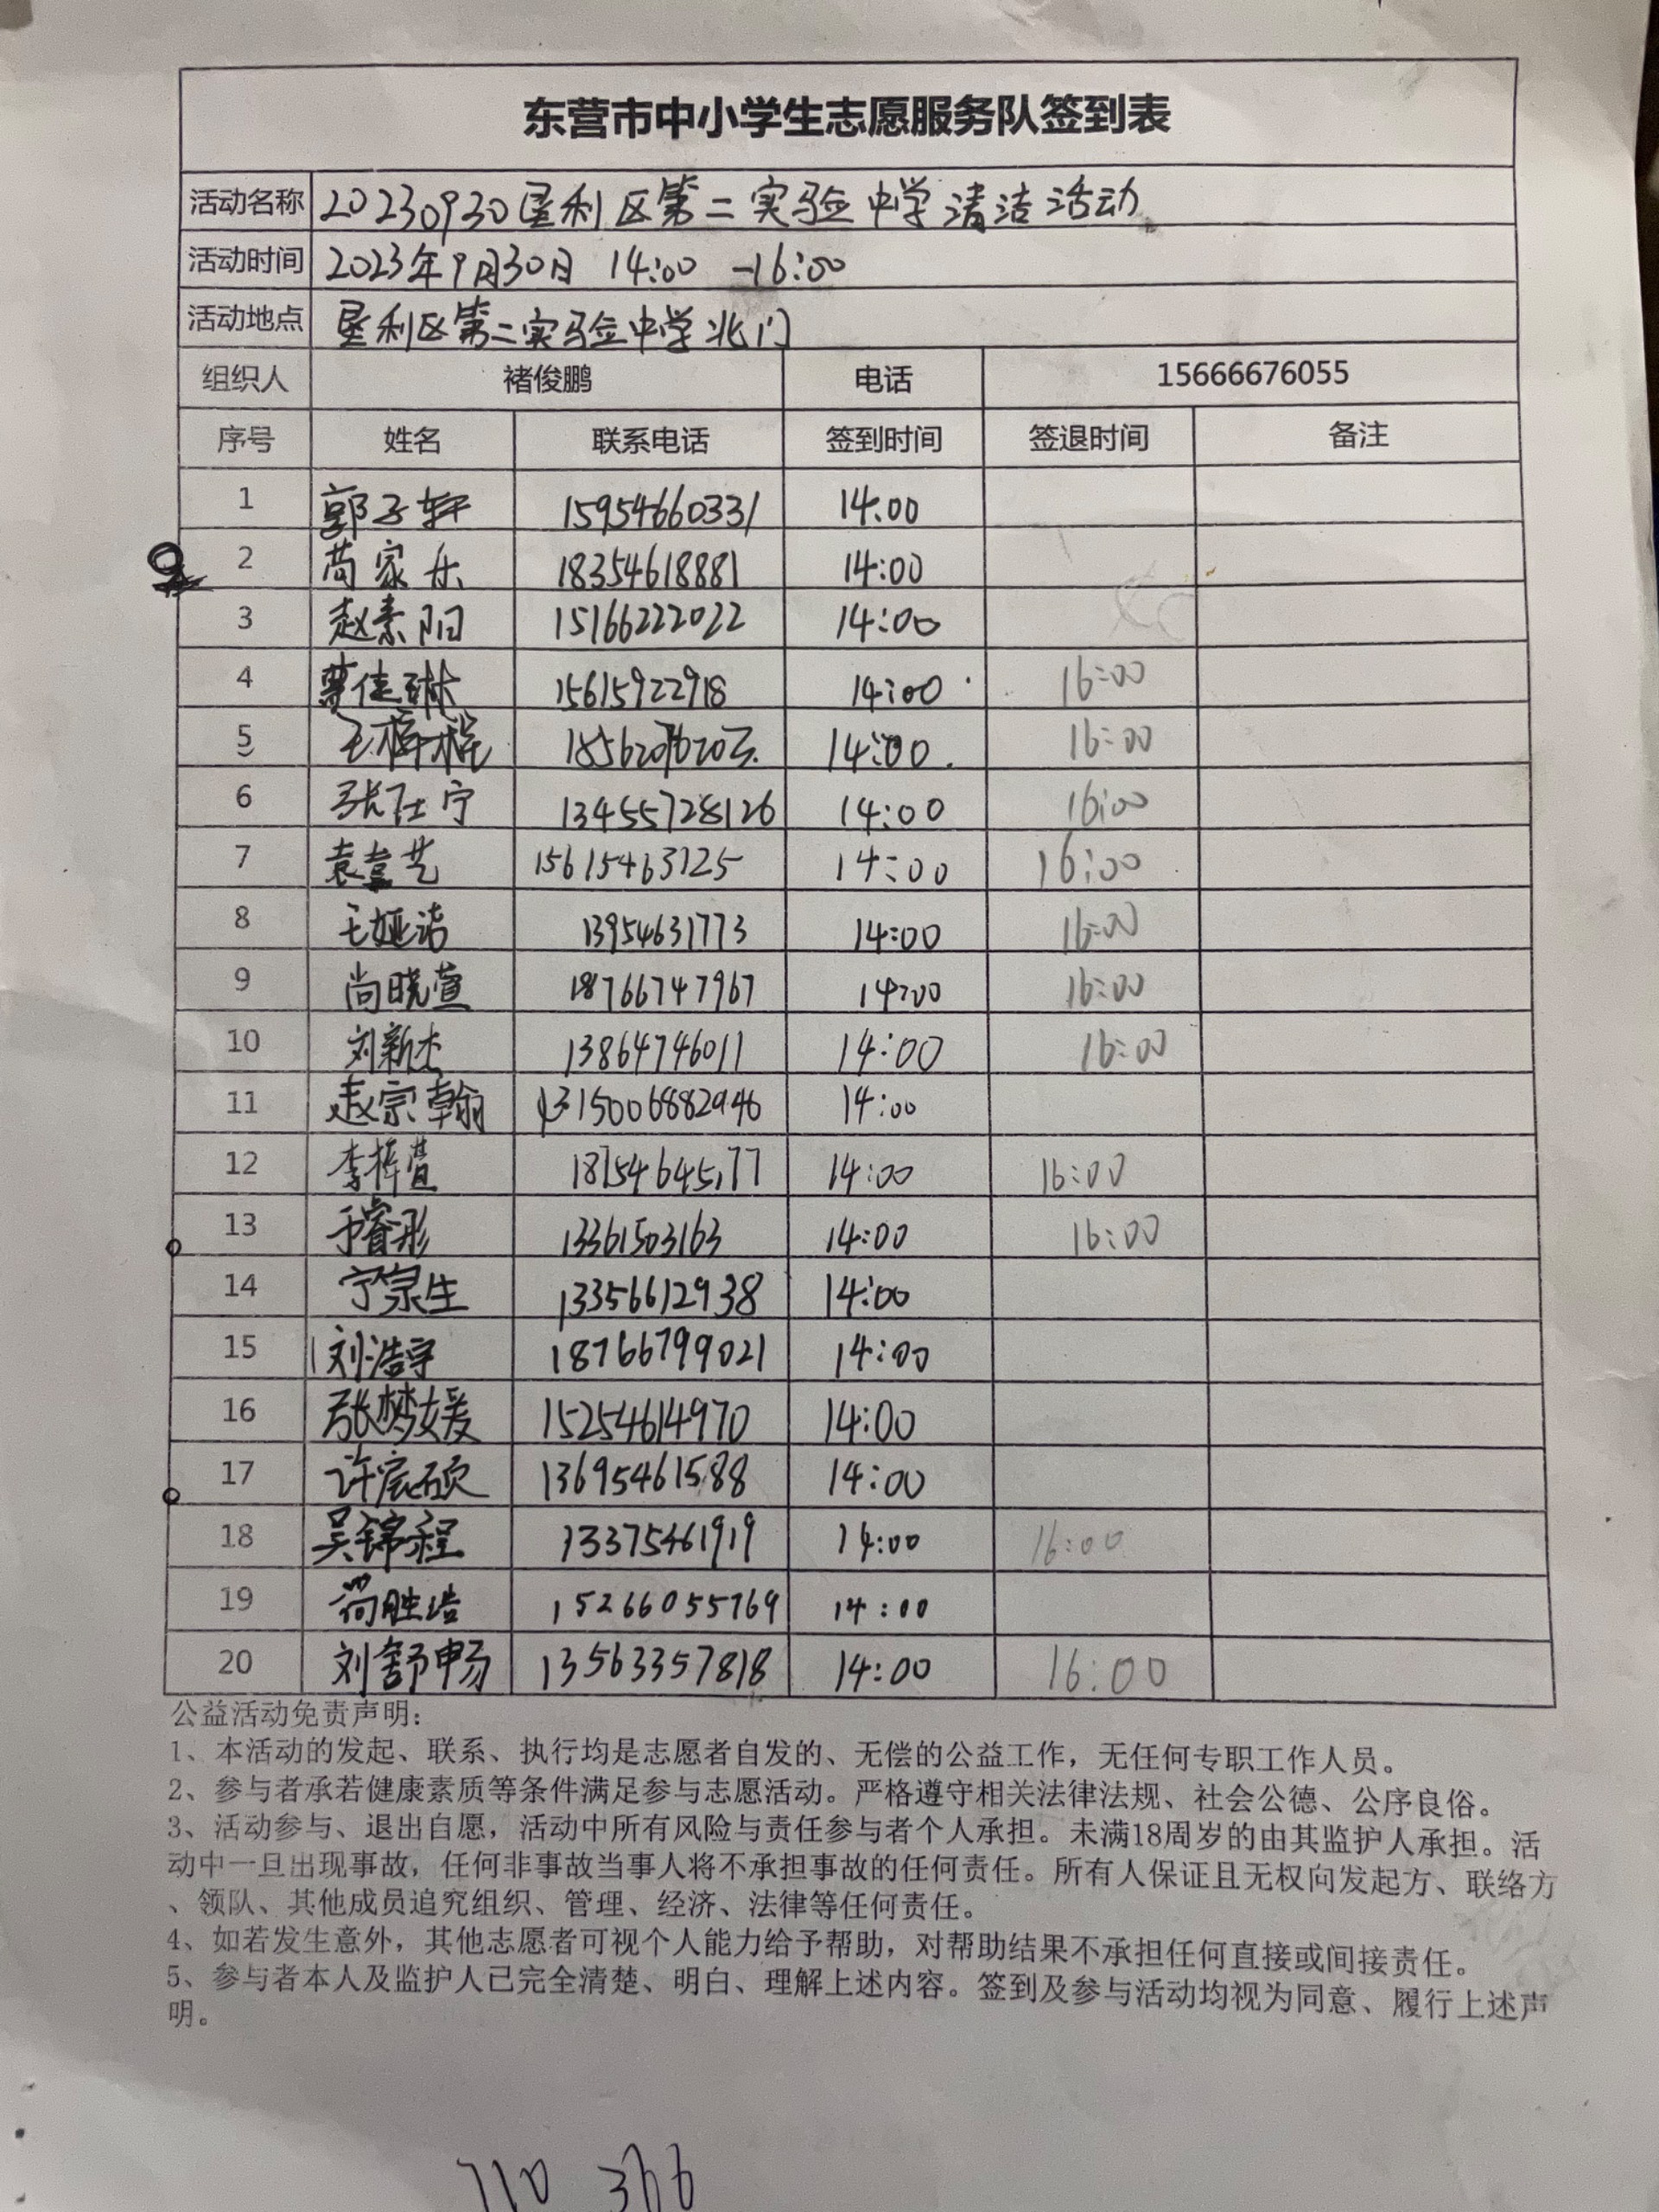 东营市中小学生志愿服务队签到表
活动名称 20230930垦利区第二实验中学清洁活动
活动时间 2023年9月30日 14:00 -16:00
活动地点 垦利区第二实验中学北门
组织人 褚俊鹏 电话 15666676055
序号 姓名 联系电话 签到时间 签退时间 备注
1 郭子轩 15954660331 14:00
2 苟家乐 18354618881 14:00
3 赵素阳 15166222022 14:00
4 佳琳 15615922918 14:00 16:00
5 王梓 14:00 16:00
6 张仕宁 13455728126 14:00 16:00
7 袁艺 15615463125 14:00 16:00
8 王娅洁 13954631773 14:00 16:00
9 尚晓萱 18766747967 14:00 16:00
10 刘新杰 13864746011 14:00 16:00
11 赵宗翰 15006882946 14:00
12 李梓萱 18754645177 14:00 16:00
13 于睿彤 13361503163 14:00 16:00
14 宁泉生 13356612938 14:00
15 刘浩宇 18766799021 14:00
16 张梦媛 15254614970 14:00
17 许宸硕 13695461588 14:00
18 吴锦程 13375461919 14:00 16:00
19 苟胜浩 15266055769 14:00
20 刘舒畅 13563357818 14:00 16:00
公益活动免责声明：
1、本活动的发起、联系、执行均是志愿者自发的、无偿的公益工作，无任何专职工作人员。
2、参与者承若健康素质等条件满足参与志愿活动。严格遵守相关法律法规、社会公德、公序良俗。
3、活动参与、退出自愿，活动中所有风险与责任参与者个人承担。未满18周岁的由其监护人承担。活
动中一旦出现事故，任何非事故当事人将不承担事故的任何责任。所有人保证且无权向发起方、联络方
、领队、其他成员追究组织、管理、经济、法律等任何责任。
4、如若发生意外，其他志愿者可视个人能力给予帮助，对帮助结果不承担任何直接或间接责任。
5、参与者本人及监护人已完全清楚、明白、理解上述内容。签到及参与活动均视为同意、履行上述声
明。
710 366